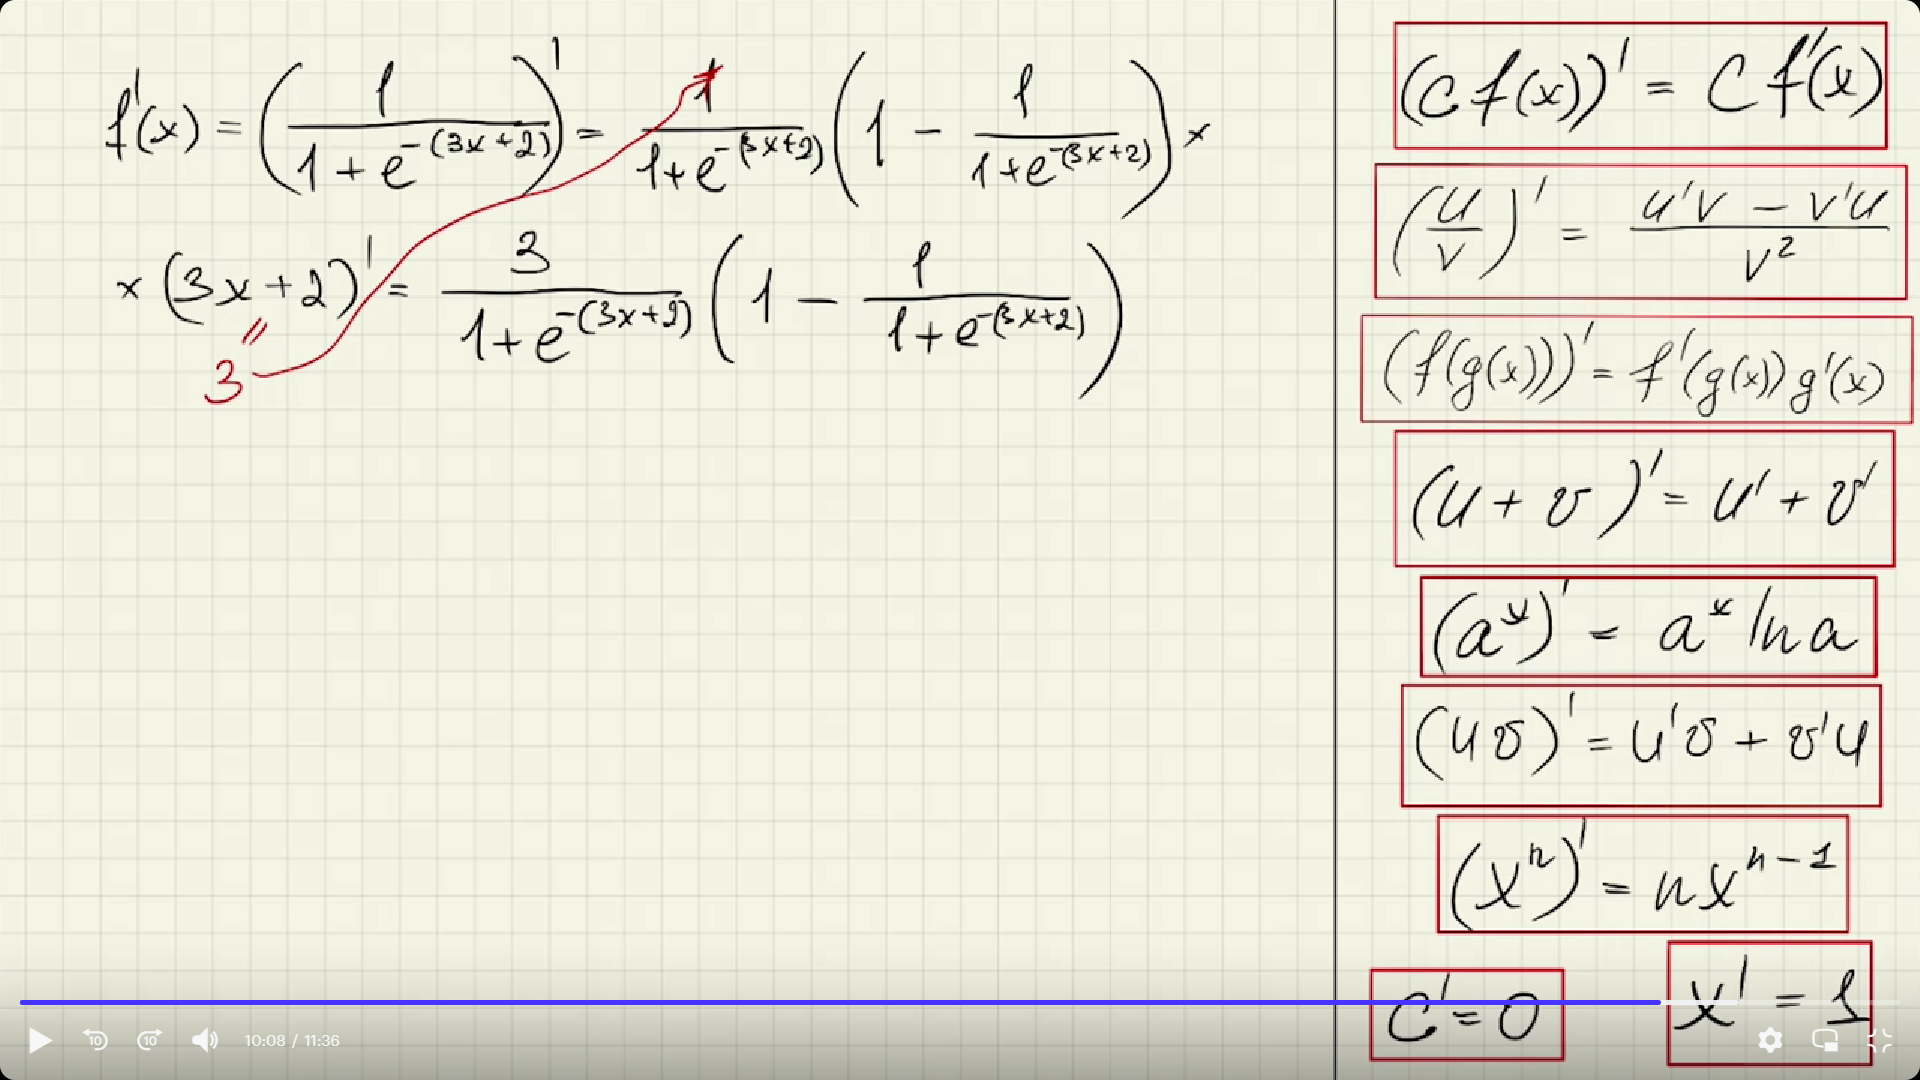 f'(x) = (1/(1+e^-(3x+2)))' = 1/(1+e^-(3x+2)) (1 - 1/(1+e^-(3x+2))) ×
× (3x+2)' = 3/(1+e^-(3x+2)) (1 - 1/(1+e^-(3x+2)))
"
3
(C f(x))' = C f'(x)
(u/v)' = (u'v - v'u)/v²
(f(g(x)))' = f'(g(x))g'(x)
(u + v)' = u' + v'
(a^x)' = a^x ln a
(uv)' = u'v + v'u
(x^n)' = nx^(n-1)
C' = 0
x' = 1
10
10
10:08 / 11:36